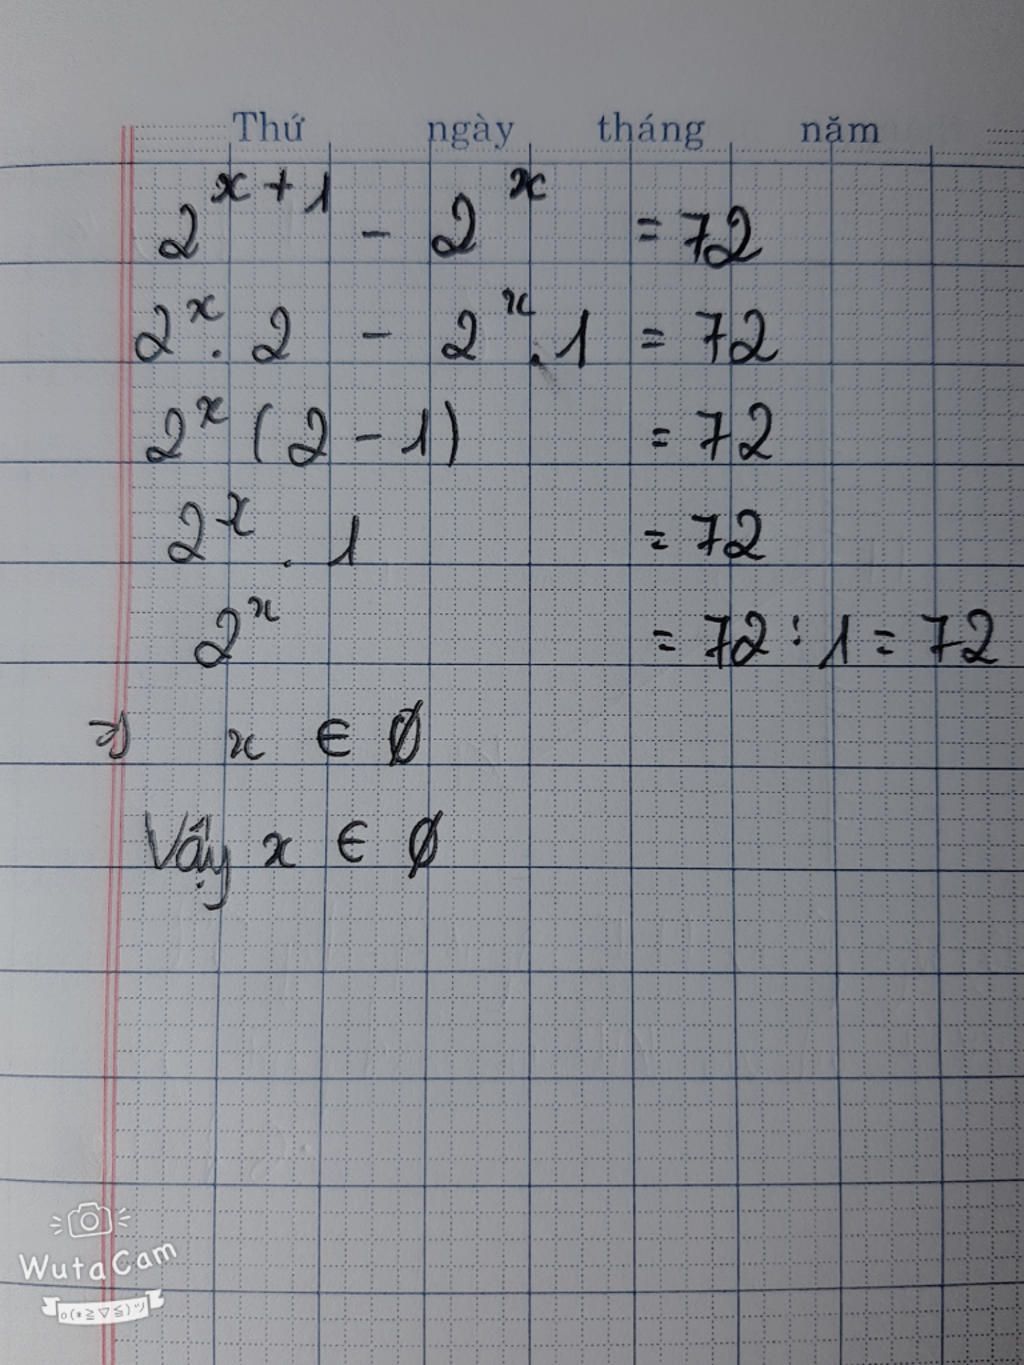 Thứ ngày tháng năm
2^{x+1} - 2^x = 72
2^x . 2 - 2^x . 1 = 72
2^x (2 - 1) = 72
2^x . 1 = 72
2^x = 72 : 1 = 72
=> x ∈ ∅
Vậy x ∈ ∅
WutaCam
o(*≧▽≦)ツ